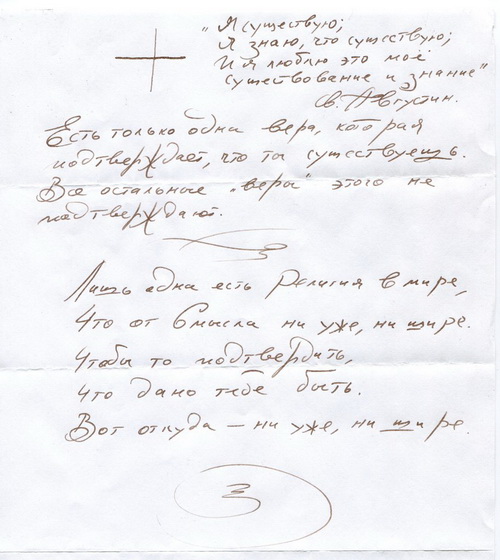 "Я существую;
Я знаю, что существую;
И я люблю это моё
существование и знание"
Св. Августин.
Есть только одна вера, которая
подтверждает, что ты существуешь.
Все остальные "веры" этого не
подтверждают.
Лишь одна есть Религия в мире,
Что от Смысла ни уже, ни шире.
Чтобы то подтвердить,
Что дано тебе быть.
Вот откуда — ни уже, ни шире.